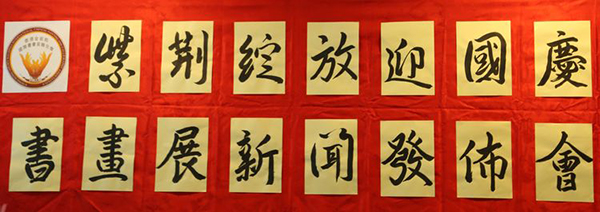 紫荆綻放迎國慶
書畫展新聞發佈會